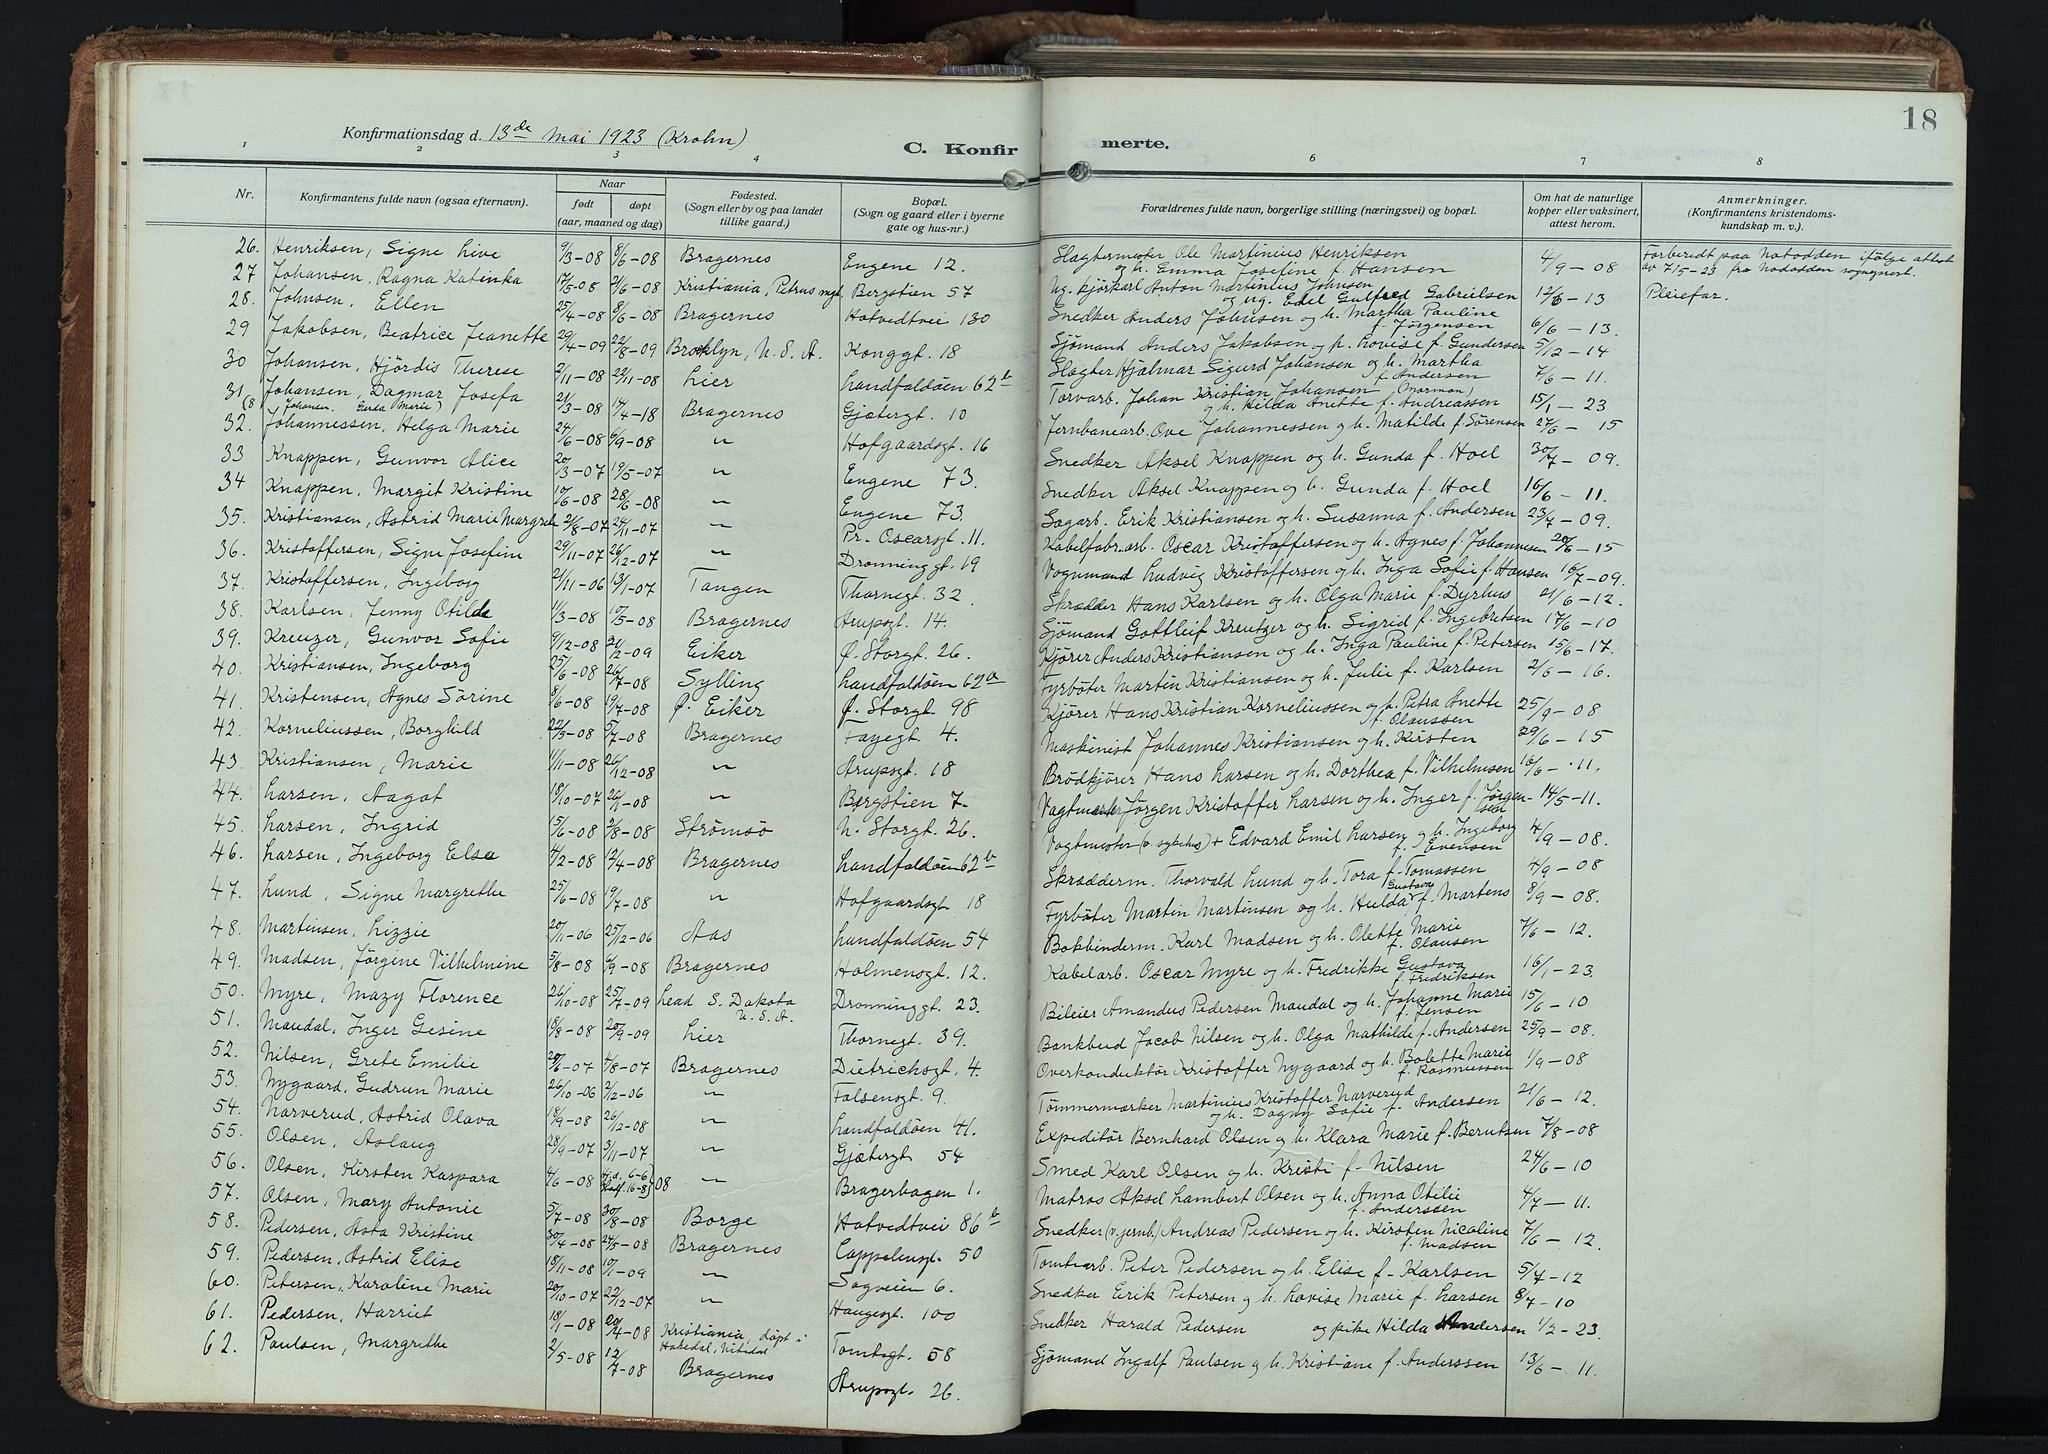 Konfirmationsdag d. 13de Mai 1923 (Krohn)
C. Konfir
merte.
18
1 2 3 4 6 7 8
Nr.
Konfirmantens fulde navn (ogsaa efternavn).
Naar
født døpt
(aar, maaned og dag)
Fødested.
(Sogn eller by og paa landet
tillike gaard.)
Bopæl.
(Sogn og gaard eller i byerne
gate og hus-nr.)
Forældrenes fulde navn, borgerlige stilling (næringsvei) og bopæl.
Om hat de naturlige
kopper eller vaksinert,
attest herom.
Anmerkninger.
(Konfirmantens kristendoms-
kundskap m. v.)
26. Henriksen, Signe Live 9/3-08 8/6-08 Bragernes Engene 12. Slagtermester Ole Martinius Henriksen og h. Emma Josefine f. Hansen 4/9-08 Forberedt paa Notodden ifølge attest av 7/5-23 fra sogneprest.
27 Johansen, Ragna Katinka 17/5-08 2/6-08 Kristiania, Petrus mgt. Bergstien 57 Ug. kjørkarl Anton Martinius Johnsen og ug. Edel Gulfred Gabrielsen 12/6-13 Pleiefar.
28. Johnsen, Ellen 25/4-08 8/6-08 Bragernes Hotvedtvei 130 Snedker Anders Johnsen og h. Martha Pauline f. Jørgensen 6/6-13.
29 Jakobsen, Beatrice Jeanette 29/4-09 22/8-09 Brooklyn, U. S. A. Konggt. 18 Sjømand Anders Jakobsen og h. Lovise f. Gundersen 5/12-14
30 Johansen, Hjördis Therese 2/11-08 22/11-08 Lier Landfaldöen 62 b Slagter Hjalmar Sigurd Johansen og h. Martha f. Andersen 7/6-11.
31 (8 Johansen, Dagmar Josefa 21/3-08 17/4-18 Bragernes Gjetergt. 10 Torvarb. Johan Kristian Johansen (Mormon) og h. Hilda Anette f. Andreassen 15/1-23
Johansen, Gerda Marie)
32. Johannessen, Helga Marie 24/6-08 6/9-08 " Hofgaardsgt. 16 Jernbanearb. Ove Johannessen og h. Matilde f. Sörensen 27/6-15
33 Knappen, Gunvor Alice 20/3-07 19/5-07 " Engene 73. Snedker Aksel Knappen og h. Gunda f. Hoel 30/7-09.
34 Knappen, Margit Kristine 10/6-08 28/6-08 " Engene 73. Snedker Aksel Knappen og h. Gunda f. Hoel 16/6-11.
35. Kristiansen, Astrid Marie Margret 2/8-07 24/11-07 " Pr. Oscarsgt. 11. Sagarb. Erik Kristiansen og h. Susanna f. Andersen 23/7-09.
36. Kristoffersen, Signe Josefine 29/11-07 26/12-07 " Dronninggt. 19 Kabelfabr.arb. Oscar Kristoffersen og h. Agnes f. Johannesen 20/6-15
37. Kristoffersen, Ingeborg 21/11-06 13/1-07 Tangen Thornegt. 32. Vognmand Ludvig Kristoffersen og h. Inga Sofie f. Hansen 16/7-09.
38. Karlsen, Jenny Otilde 11/3-08 10/5-08 Bragernes Arupsgt. 14. Skrædder Hans Karlsen og h. Olga Marie f. Dyrhus 21/6-12.
39. Kreuzer, Gunvor Sofie 9/12-08 21/2-09 Eiker Ö. Storgt. 26. Sjömand Gottleif Kreutzer og h. Sigrid f. Ingebretsen 17/6-10
40. Kristiansen, Ingeborg 25/6-08 26/7-08 Sylling Landfaldöen 62 a Kjörer Anders Kristiansen og h. Inga Pauline f. Petersen 15/6-17.
41. Kristensen, Agnes Sörine 8/6-08 19/7-08 Ö. Eiker Ö. Storgt. 98 Fyrböter Martin Kristiansen og h. Julie f. Karlsen 2/6-16.
42. Korneliussen, Borghild 22/5-08 5/7-08 Bragernes Fayegt. 4. Kjörer Hans Kristian Korneliussen og h. Petra Anette f. Olaussen 25/9-08
43. Kristiansen, Marie 1/11-08 26/12-08 " Arupsgt. 18 Maskinist Johannes Kristiansen og h. Kirsten 29/6-15
44. Larsen, Aagot 18/10-07 26/1-08 " Bergstien 7. Brödkjörer Hans Larsen og h. Dorthea f. Vilhelmsen 16/6-11.
45. Larsen, Ingrid 15/6-08 2/8-08 Strömsö N. Storgt. 26. Vagtm. Jörgen Kristoffer Larsen og h. Inger f. Jörgensen 14/5-11.
46. Larsen, Ingeborg Else 4/2-08 12/4-08 Bragernes Landfaldöen 62 b Vagtmester (v. sykehus) + Edvard Emil Larsen og h. Ingeborg f. Evensen 4/9-08.
47. Lund, Signe Margrethe 25/6-08 19/7-08 " Hofgaardsgt. 18 Skrædderm. Thorvald Lund og h. Tora f. Tomassen 4/9-08
48. Martinsen, Lizzie 20/11-06 25/12-06 Aas Landfaldöen 54 Fyrböter Martin Martinsen og h. Hulda Gustava f. Martens 8/9-08.
49. Madsen, Jörgine Vilhelmine 5/8-08 6/9-08 Bragernes Holmensgt. 12. Bokbinderm. Karl Madsen og h. Olette Marie f. Olausen 7/6-12.
50. Myre, Mazy Florence 26/10-08 25/7-09 Lead S. Dakota U. S. A. Dronninggt. 23. Kabelarb. Oscar Myre og h. Fredrikke Gustava f. Fredriksen 16/1-23
51. Maudal, Inger Gesine 18/8-08 20/9-09 Lier Thornegt. 39. Bileier Amandus Pedersen Maudal og h. Johanne Marie f. Jensen 15/6-10
52. Nilsen, Grete Emilie 20/6-07 4/8-07 Bragernes Dietrichsgt. 4. Bankbud Jacob Nilsen og h. Olga Mathilde f. Andersen 25/9-08.
53. Nygaard, Gudrun Marie 26/10-06 2/12-06 " Falsensgt. 9. Overkonduktör Kristoffer Nygaard og h. Bolette Marie f. Rasmussen 1/9-08
54. Narverud, Astrid Olava 18/9-08 26/12-08 " Landfaldöen 41. Tömmermerker Martinius Kristoffer Narverud og h. Dagny Sofie f. Andersen 21/6-12.
55. Olsen, Aslaug 28/9-07 3/11-07 " Gjetergt 54 Expeditör Bernhard Olsen og h. Klara Marie f. Berntsen 7/8-08
56. Olsen, Kirsten Kaspara 4/6-08 Hjd. 6-6 Kdf. 16-8 } 08 " Bragerhagen 1. Smed Karl Olsen og h. Kristi f. Nilsen 24/6-10
57. Olsen, Mary Antonie 5/7-08 30/8-08 Borge Hotvedtvei 86 b Matros Aksel Lambert Olsen og h. Anna Otilie f. Anderssen 4/7-11.
58. Pedersen, Asta Kristine 30/4-08 24/5-08 Bragernes Cappelensgt. 50 Snedker (v. jernb.) Andreas Pedersen og h. Kirsten Nicoline f. Madsen 7/6-12.
59. Pedersen, Astrid Elise 18/11-08 10/1-09 " Sagveien 6. Tomtearb. Peter Pedersen og h. Elise f. Karlsen 5/7-12
60. Petersen, Karoline Marie 20/10-07 22/12-07 " Haugesgt. 100 Snedker Erik Petersen og h. Lovise Marie f. Larsen 8/7-10
61. Pedersen, Harriet 18/1-08 20/4-08 Kristiania, döpt i Hakedal, Nitedal Tomtegt. 58 Snedker Harald Pedersen og pike Hilda Andersen 1/2-23.
62. Paulsen, Margrethe 2/5-08 12/7-08 Bragernes Arupsgt. 26. Sjömand Ingolf Paulsen og h. Kristiane f. Anderssen 13/6-11.